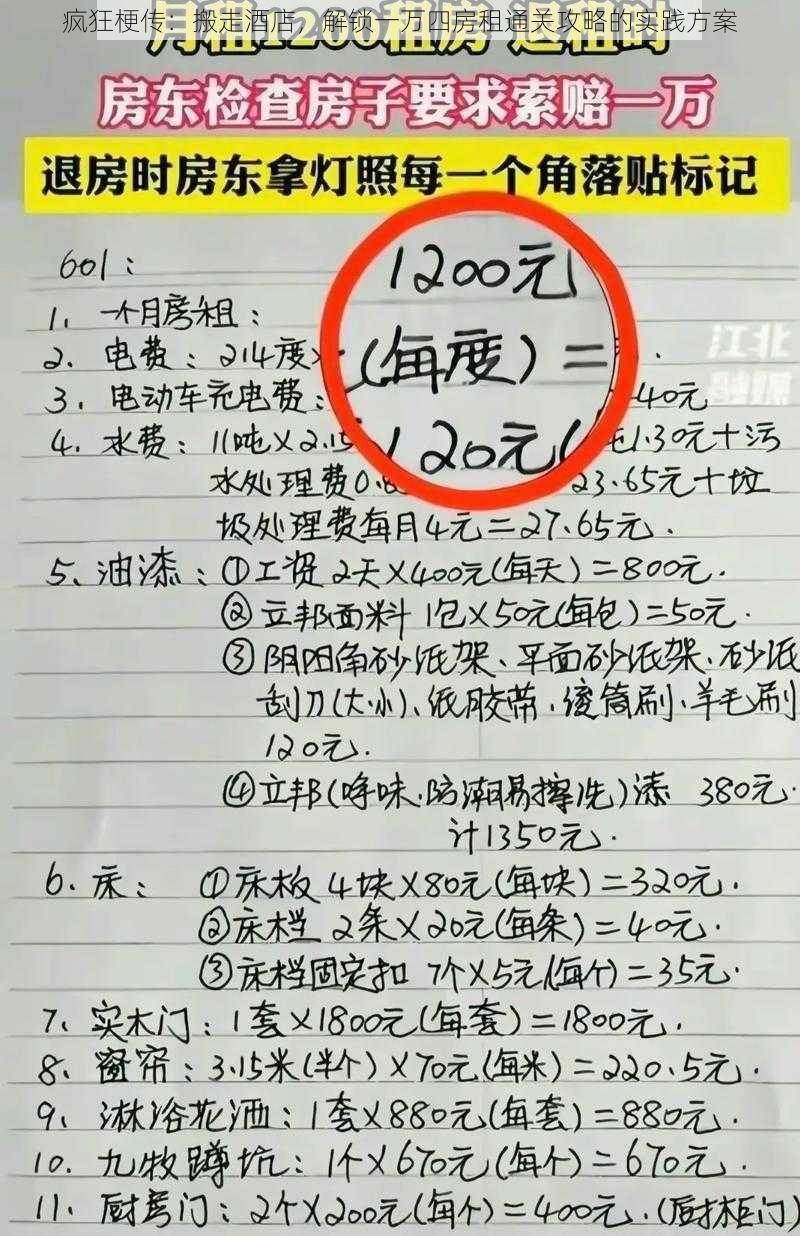 疯狂梗传：搬走酒店，解锁一万四房租通关攻略的实践方案
月租1200租房 退租时
房东检查房子要求索赔一万
退房时房东拿灯照每一个角落贴标记
601：
1、一个月房租： 1200元
2、电费：214度× (每度)＝
3、电动车充电费： 40元
120元(
4、水费：11吨×2.15 吨1.30元＋污
水处理费0.8 23.65元＋垃
圾处理费每月4元＝27.65元.
5、油漆：①工资 2天×400元(每天)＝800元.
②立邦面料 1包×50元(每包)＝50元.
③阴阳角砂泜架、平面砂泜架、砂泜
刮刀(大小)、纸胶带、滚筒刷、羊毛刷
120元.
④立邦(净味.防潮易擦洗)漆 380元.
计1350元.
6、床： ①床板 4块×80元(每块)＝320元.
②床栏 2条×20元(每条)＝40元.
③床栏固定扣 7个×5元(每个)＝35元.
7、实木门：1套×1800元(每套)＝1800元.
8、窗帘：3.15米(半个)×70元(每米)＝220.5元.
9、淋浴花洒：1套×880元(每套)＝880元.
10、九牧蹲坑：1个×670元(每个)＝670元.
11、厨房门：2个×200元(每个)＝400元.(厨柜门)